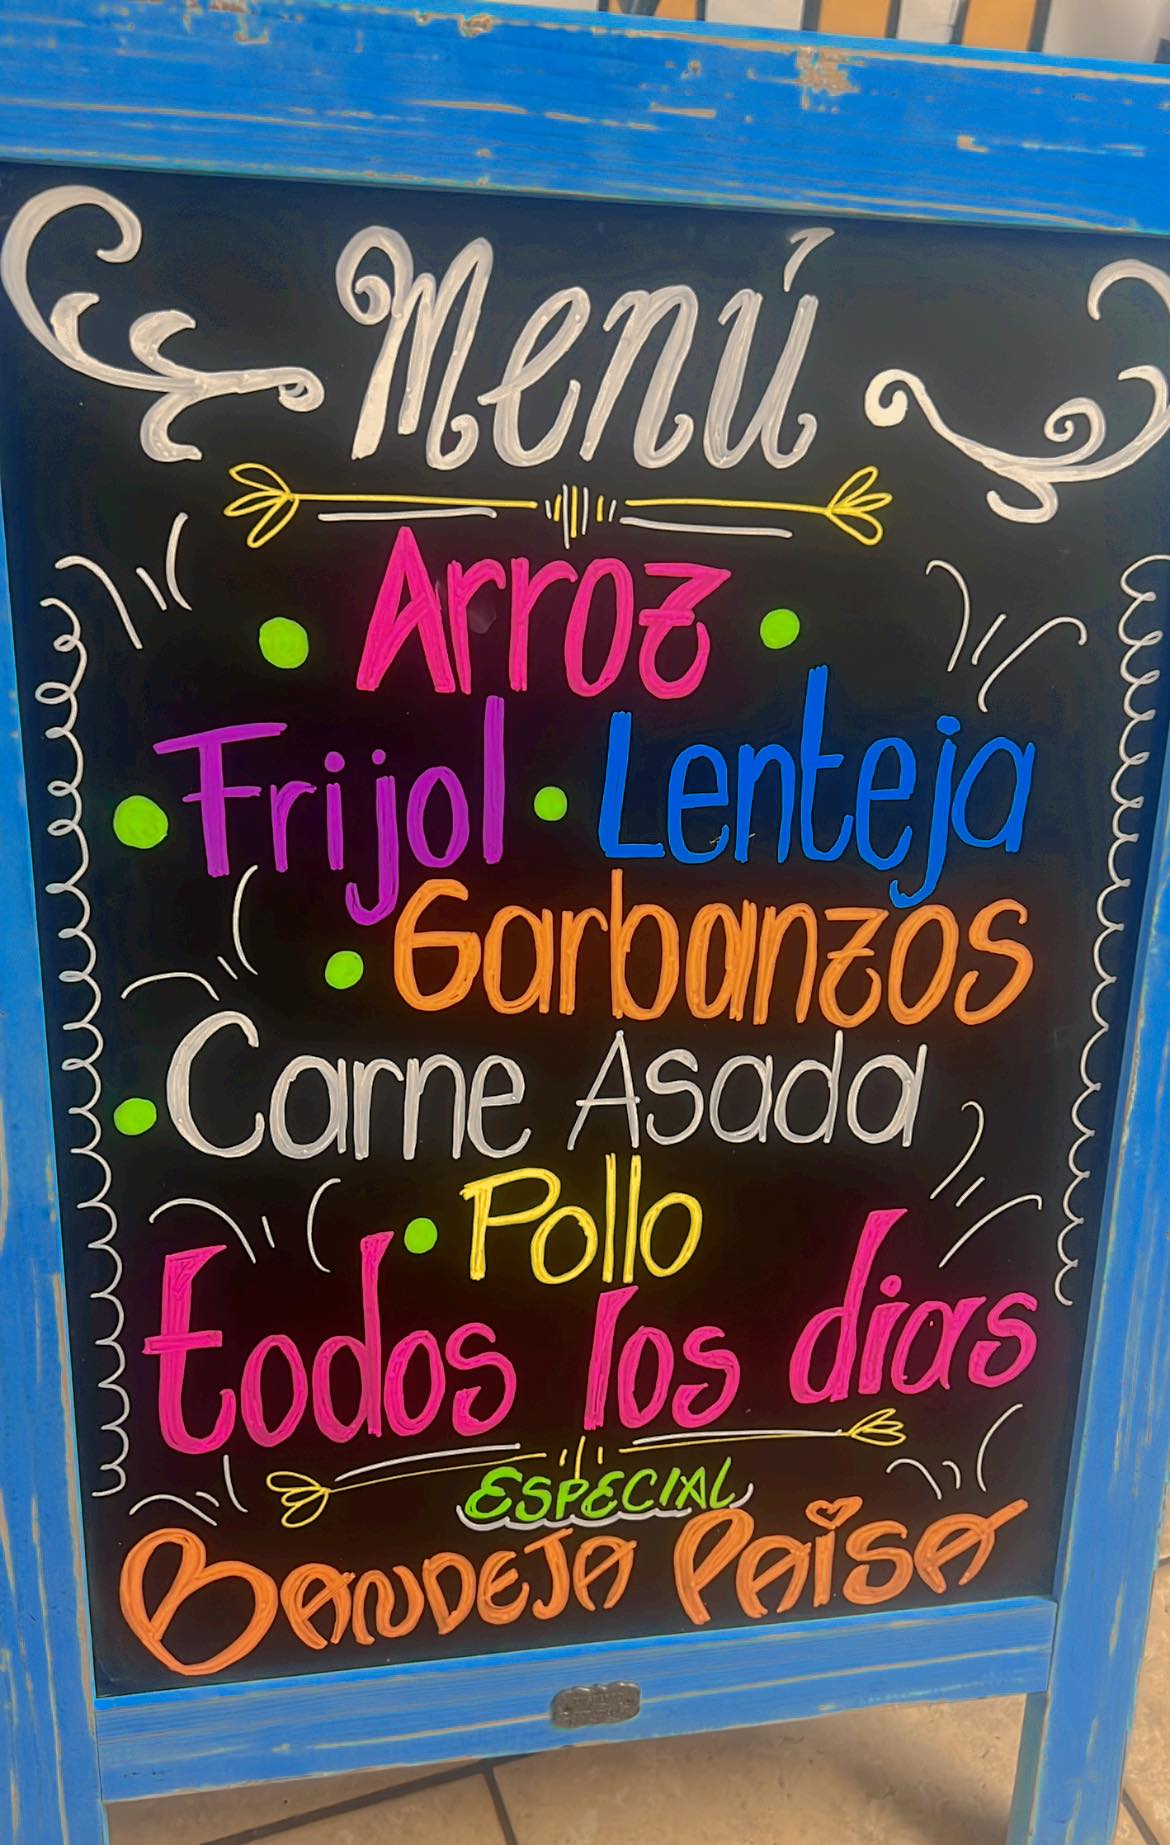 Menú
Arroz
Frijol • Lenteja
• Garbanzos
• Carne Asada
• Pollo
todos los dias
ESPECIAL
BANDEJA PAISA